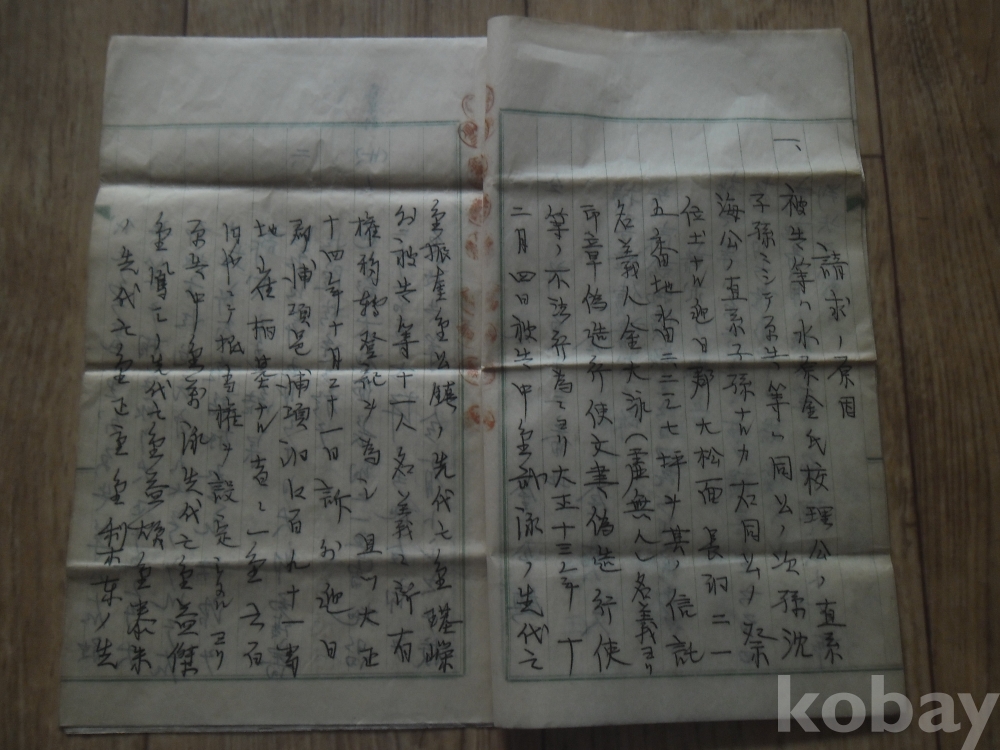 請求ノ原因
一、
被告等ハ水原金氏校理公ノ直系
子孫ニシテ原告等ハ同公ノ次孫沈
海公ノ直系子孫ナルカ右同公ノ祭
位土ナル迎日郡大松面長洞二一
五番地畓二三三七坪ヲ其ノ信託
名義人金大泳(虚無人)名義ヨリ
印章偽造行使文書偽造行使
等ノ不法行為ニヨリ大正十三年十
二月四日被告中金武泳ノ先代亡
金振奎金公鎮ノ先代亡金璂
外被告等十一人名義ニ所有
権移転登記ヲ為シ且ツ大正
十四年十月三十一日訴外迎日
郡浦項邑浦項洞百九十一番
地崔柄基ナル者ニ金六百
円也ニテ抵当権ヲ設定シタルヨリ
原告中金劤泳先代亡金益傑
金鳳ノ先代亡金益煥金泰朱
ノ先代亡金正金東ノ先
kobay